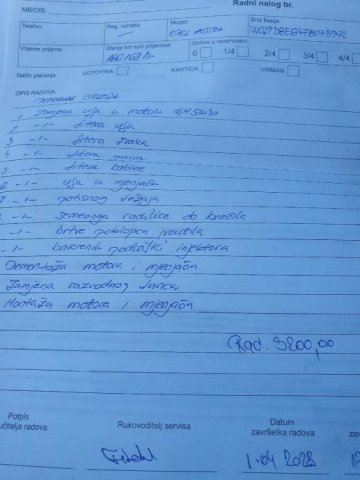 Radni nalog br.
MB/OIB:
Telefon: Reg. oznaka: Model: OPEL ASTRA Broj šasije:
Vrijeme prijema: Stanje km kod prijema: Gorivo u rezervoaru: 0 1/4 2/4 3/4 4/4
Način plaćanja: GOTOVINA KARTICA VIRMAN
OPIS RADOVA:
1 Zamjena ulja u motoru 5W30
2 -11- filtera ulja
3 -11- filtera zraka
4 -11- filtera goriva
5 -11- filtera kabine
6 -11- ulja u mjenjaču
7 -11- potisnog ležaja
-11- semeringa radilice do kvačila
-11- brtve poklopca ventila
-11- bakrenih podloški injektora
Demontaža motora i mjenjača
Zamjena razvodnog lanca
Montaža motora i mjenjača
Rad. 3200,00
Potpis
Rukovoditelj servisa
Datum
završetka radova
1.04 2025